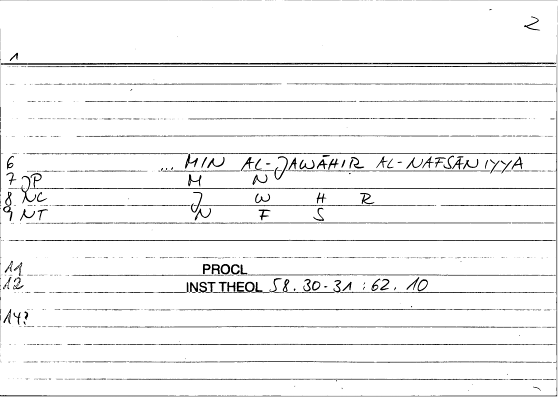 2
1
6 ... MIN AL-JAWĀHIR AL-NAFSĀNIYYA
7 JP M N
8 NC J W H R
9 NT N F S
11 PROCL
12 INST THEOL 58.30-31 : 62.10
14?